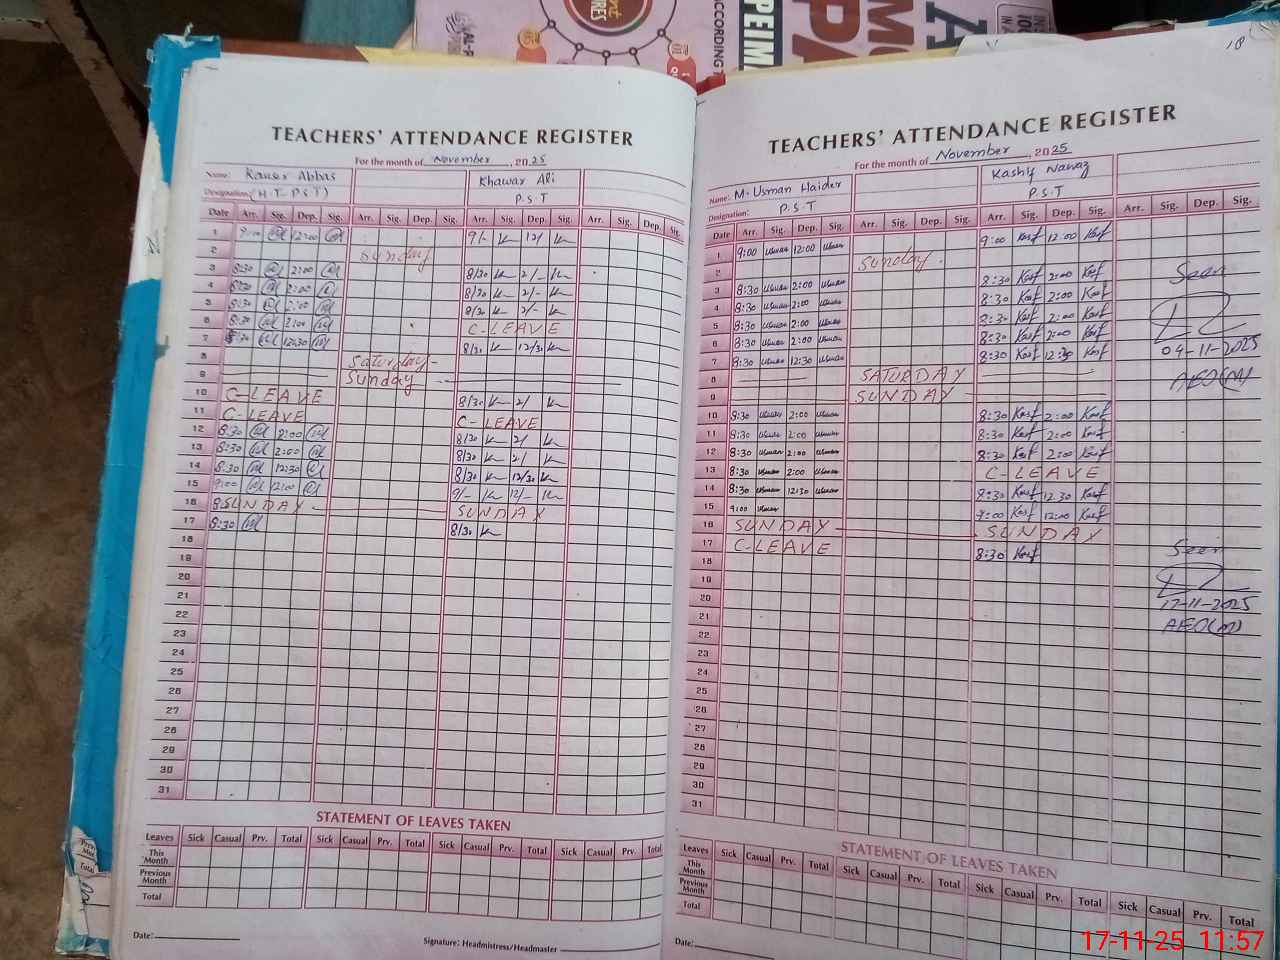 ACCORDING
TEACHERS' ATTENDANCE REGISTER
For the month of November, 2025
Name: Kauser Abbas Khawar Ali
Designation: (H.T. P.S.T) P.S.T
Date Arr. Sig. Dep. Sig. Arr. Sig. Dep. Sig. Arr. Sig. Dep. Sig. Arr. Sig. Dep. Sig.
1 9:00 12:00 9/- 12/
2 Sunday
3 8:30 2:00 8/30 2/-
4 8:30 2:00 8/30 2/-
5 8:30 2:00 8/30 2/-
6 8:30 2:00 C-LEAVE
7 8:30 12:30 8/30 12/30
8 Saturday
9 Sunday
10 C-LEAVE 8/30 2/
11 C-LEAVE C-LEAVE
12 8:30 2:00 8/30 2/
13 8:30 2:00 8/30 2/
14 8:30 12:30 8/30 12/30
15 9:00 12:00 9/- 12/-
16 SUNDAY SUNDAY
17 8:30 8/30
18
19
20
21
22
23
24
25
26
27
28
29
30
31
STATEMENT OF LEAVES TAKEN
Leaves Sick Casual Prv. Total Sick Casual Prv. Total Sick Casual Prv. Total Sick Casual Prv. Total
This Month
Previous Month
Total
Date: Signature: Headmistress/Headmaster
18
TEACHERS' ATTENDANCE REGISTER
For the month of November, 2025
Name: M. Usman Haider Kashif Nawaz
Designation: P.S.T P.S.T
Date Arr. Sig. Dep. Sig. Arr. Sig. Dep. Sig. Arr. Sig. Dep. Sig. Arr. Sig. Dep. Sig.
1 9:00 Usman 12:00 Usman 9:00 Kasf 12:00 Kasf
2 Sunday
3 8:30 Usman 2:00 Usman 8:30 Kasf 2:00 Kasf Seen
4 8:30 Usman 2:00 Usman 8:30 Kasf 2:00 Kasf
5 8:30 Usman 2:00 Usman 8:30 Kasf 2:00 Kasf
6 8:30 Usman 2:00 Usman 8:30 Kasf 2:00 Kasf
7 8:30 Usman 12:30 Usman 8:30 Kasf 12:30 Kasf 04-11-2025
8 SATURDAY AEO(M)
9 SUNDAY
10 8:30 Usman 2:00 Usman 8:30 Kasf 2:00 Kasf
11 8:30 Usman 2:00 Usman 8:30 Kasf 2:00 Kasf
12 8:30 Usman 2:00 Usman 8:30 Kasf 2:00 Kasf
13 8:30 Usman 2:00 Usman C-LEAVE
14 8:30 Usman 12:30 Usman 8:30 Kasf 12:30 Kasf
15 9:00 Usman 9:00 Kasf 12:00 Kasf
16 SUNDAY SUNDAY
17 C-LEAVE 8:30 Kasf Seen
18
19
20 17-11-2025
21 AEO(M)
22
23
24
25
26
27
28
29
30
31
STATEMENT OF LEAVES TAKEN
Leaves Sick Casual Prv. Total Sick Casual Prv. Total Sick Casual Prv. Total Sick Casual Prv. Total
This Month
Previous Month
Total
Date:
17-11-25 11:57